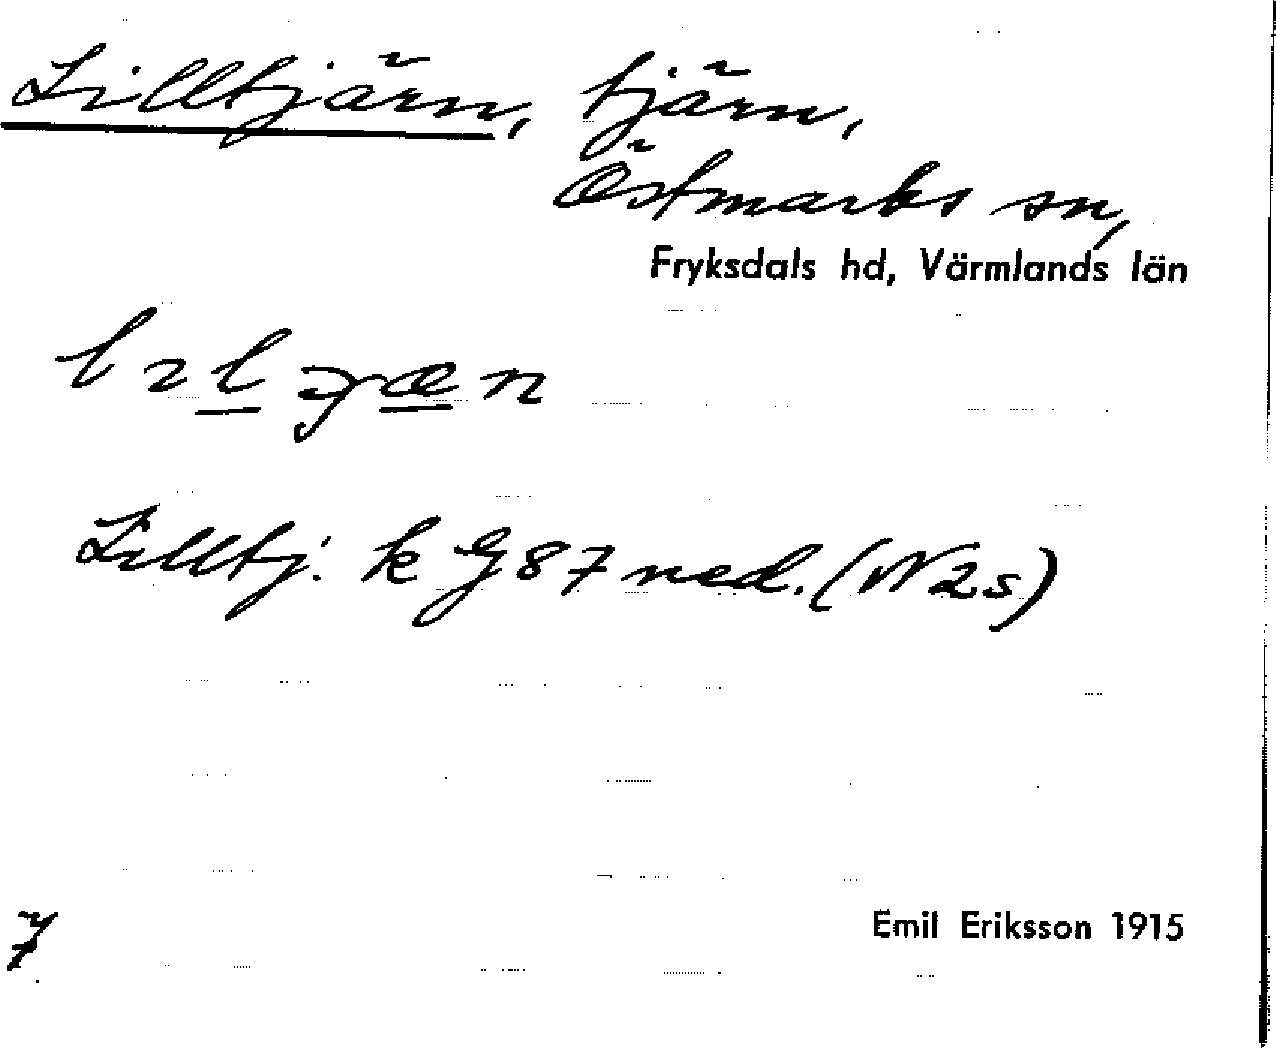 Lilltjärn, tjärn,
Östmarks sn,
Fryksdals hd, Värmlands län
Lilltj. k G 87 ned. (N2s)
7
Emil Eriksson 1915